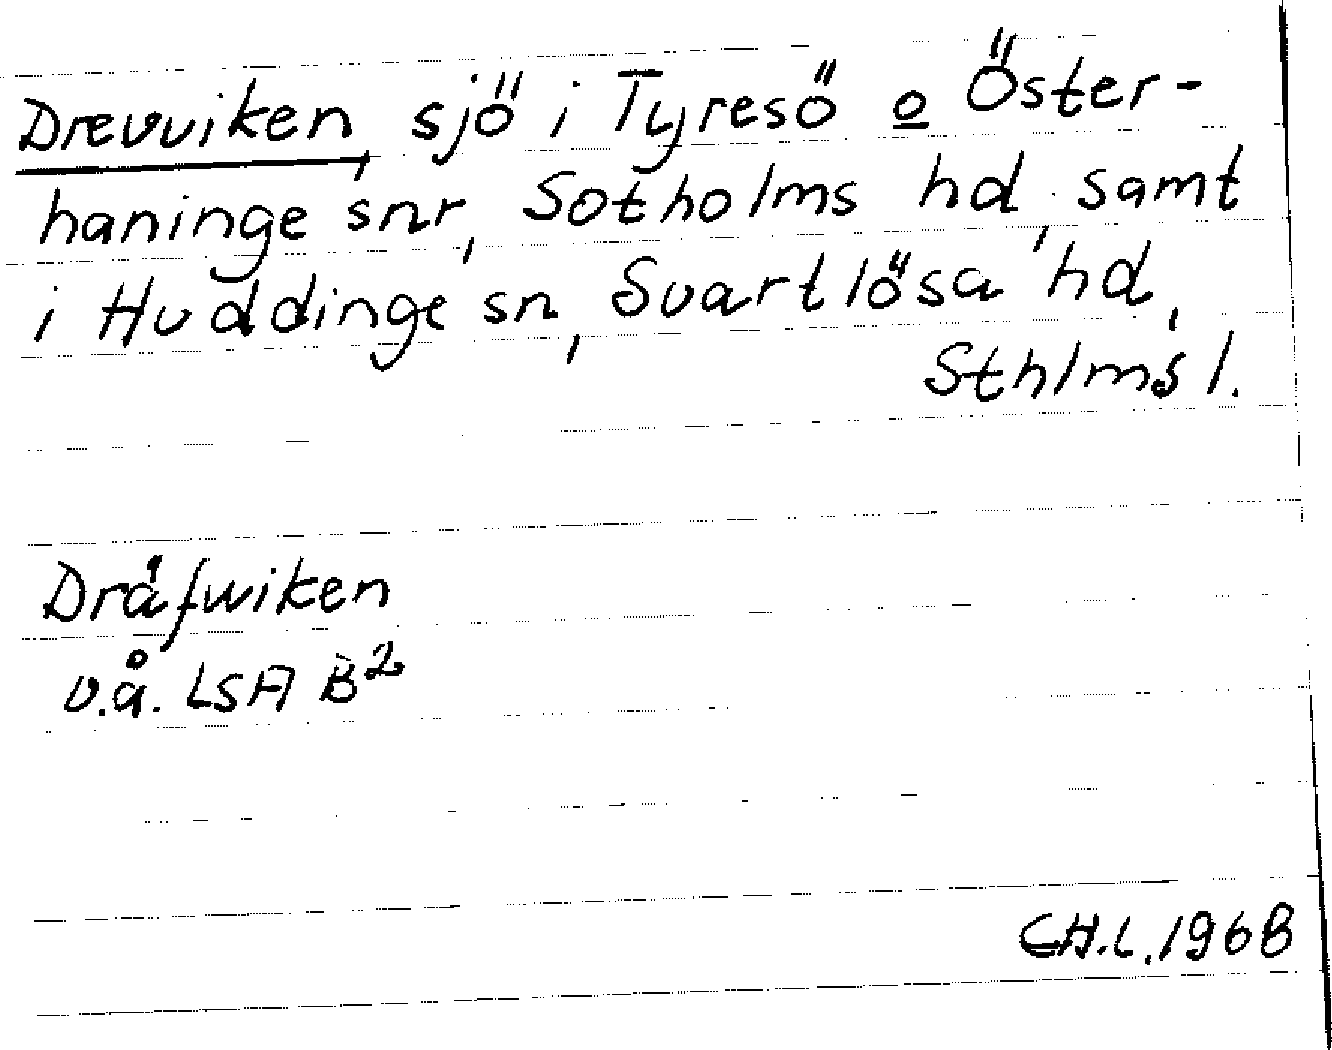 Drevviken, sjö i Tyresö o Öster-
haninge snr, Sotholms hd, samt
i Huddinge sn, Svartlösa hd,
Sthlms l.
Dräfwiken
u.å. LSA B²
CH.L. 1968